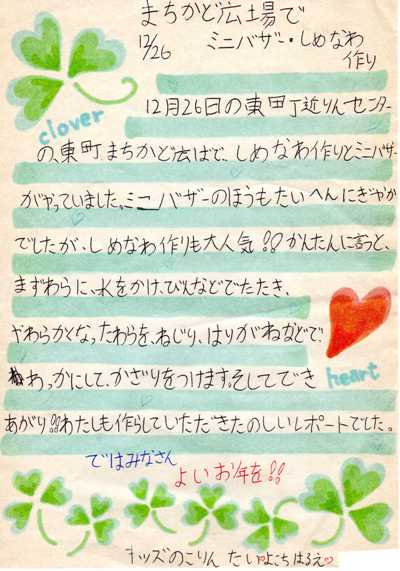 まちかど広場で
12/26 ミニバザー・しめなわ
作り
clover
12月26日の東田丁近りんセンター
の、東町まちかど広ばで、しめなわ作りとミニバザー
がやっていました。ミニバザーのほうもたいへんにぎやか
でしたが、しめなわ作りも大人気!!かんたんに言うと、
まずわらに、水をかけ、びんなどでたたき、
やわらかくなったわらを、ねじり、はりがねなどで
わっかにして、かざりをつけます。そしてでき
heart
あがり!!わたしも作らしていただきたのしいレポートでした。
ではみなさん
よいお年を!!
キッズのこりん たい よこちはるえ♡